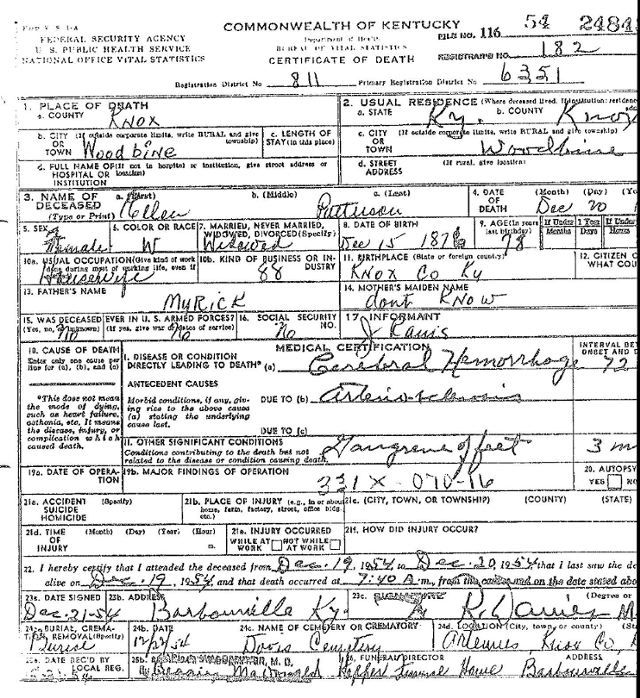 COMMONWEALTH OF KENTUCKY
FEDERAL SECURITY AGENCY
U. S. PUBLIC HEALTH SERVICE
NATIONAL OFFICE VITAL STATISTICS
Department of Health
BUREAU OF VITAL STATISTICS
CERTIFICATE OF DEATH
FILE NO. 116 54 2484
REGISTRAR'S NO. 182
Registration District No. 811 Primary Registration District No. 6351
1. PLACE OF DEATH
a. COUNTY Knox
2. USUAL RESIDENCE (Where deceased lived. If institution: residence
a. STATE Ky. b. COUNTY Knox
b. CITY (If outside corporate limits, write RURAL and give township)
OR TOWN Woodbine
c. LENGTH OF STAY (in this place)
c. CITY (If outside corporate limits, write RURAL and give township)
OR TOWN Woodbine
d. FULL NAME OF (If not in hospital or institution, give street address or location)
HOSPITAL OR INSTITUTION
d. STREET ADDRESS (If rural, give location)
3. NAME OF DECEASED (Type or Print)
a. (First) Ellen b. (Middle) c. (Last) Patterson
4. DATE OF DEATH (Month) (Day) Dec 20
5. SEX Female
6. COLOR OR RACE W
7. MARRIED, NEVER MARRIED, WIDOWED, DIVORCED (Specify) Widowed
8. DATE OF BIRTH Dec 15 1876
9. AGE (In years last birthday) 78
If Under Months Days
10a. USUAL OCCUPATION (Give kind of work done during most of working life, even if Housewife
10b. KIND OF BUSINESS OR INDUSTRY 88
11. BIRTHPLACE (State or foreign country) Knox Co Ky
12. CITIZEN O
WHAT COU
13. FATHER'S NAME MyRick
14. MOTHER'S MAIDEN NAME dont Know
15. WAS DECEASED EVER IN U. S. ARMED FORCES?
(Yes, no, or unknown) (If yes, give war or dates of service)
No No
16. SOCIAL SECURITY NO. No
17. INFORMANT
MEDICAL CERTIFICATION
18. CAUSE OF DEATH
Enter only one cause per line for (a), (b), and (c)
I. DISEASE OR CONDITION DIRECTLY LEADING TO DEATH* (a) Cerebral Hemorrhage
INTERVAL BETW
ONSET AND D
72
*This does not mean the mode of dying, such as heart failure, asthenia, etc. It means the disease, injury, or complication which caused death.
ANTECEDENT CAUSES
Morbid conditions, if any, giving rise to the above cause (a) stating the underlying cause last.
DUE TO (b)
DUE TO (c)
II. OTHER SIGNIFICANT CONDITIONS
Conditions contributing to the death but not related to the disease or condition causing death.
Gangrene of feet 3 m
19a. DATE OF OPERATION
19b. MAJOR FINDINGS OF OPERATION
331X-070-16
20. AUTOPSY
YES NO
21a. ACCIDENT (Specify)
SUICIDE
HOMICIDE
21b. PLACE OF INJURY (e.g., in or about home, farm, factory, street, office bldg. etc.)
21c. (CITY, TOWN, OR TOWNSHIP) (COUNTY) (STATE)
21d. TIME OF INJURY (Month) (Day) (Year) (Hour) m.
21e. INJURY OCCURRED
WHILE AT WORK NOT WHILE AT WORK
21f. HOW DID INJURY OCCUR?
22. I hereby certify that I attended the deceased from Dec. 19, 1954 to Dec. 20, 1954 that I last saw the de
alive on Dec. 19, 1954 and that death occurred at 7:40 A m., from the causes and on the date stated abov
23a. DATE SIGNED Dec-21-54
23b. ADDRESS Barbourville Ky.
23c. SIGNATURE (Degree or
24a. BURIAL, CREMATION, REMOVAL (Specify) Burial
24b. DATE
24c. NAME OF CEMETERY OR CREMATORY Davis Cemetery
24d. LOCATION (City, town, or county) (State) Artemus, Knox Co,
25a. DATE REC'D BY LOCAL REG.
FUNERAL DIRECTOR ADDRESS
Hopper Funeral Home Barbourville